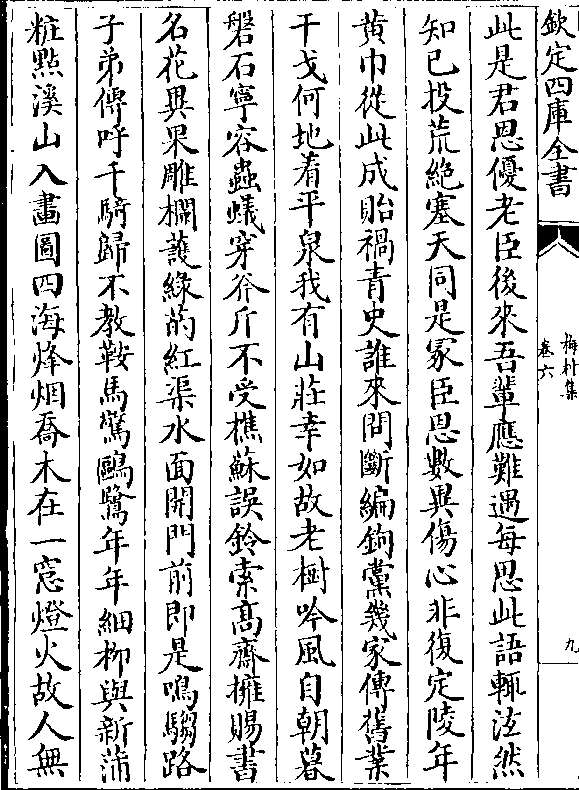 欽定四庫全書
梅村集
卷六
九
此是君恩優老臣後來吾輩應難遇每思此語輒泫然
知已投荒絶塞天同是冡臣恩數異傷心非復定陵年
黄巾從此成貽禍青史誰來問斷編鉤黨幾家傳舊業
干戈何地着平泉我有山莊幸如故老樹吟風自朝暮
磐石寧容蟲蟻穿斧斤不受樵蘇誤鈴索髙齋擁賜書
名花異果雕欄護緑菂紅渠水面開門前即是鳴騶路
子弟傳呼千騎歸不教鞍馬驚鷗鷺年年細柳與新蒲
粧點溪山入畫圖四海烽烟喬木在一窓燈火故人無